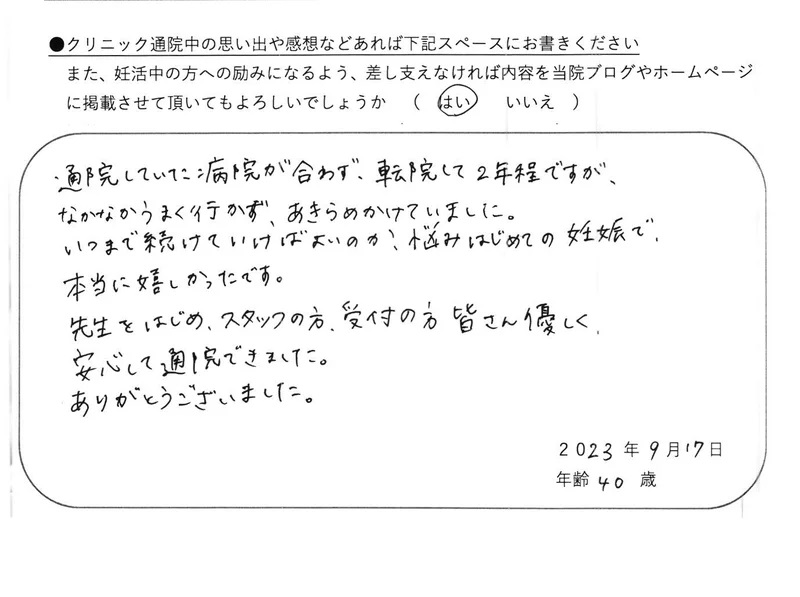 ●クリニック通院中の思い出や感想などあれば下記スペースにお書きください
また、妊活中の方への励みになるよう、差し支えなければ内容を当院ブログやホームページ
に掲載させて頂いてもよろしいでしょうか （ はい いいえ ）
通院していた病院が合わず、転院して2年程ですが、
なかなかうまく行かず、あきらめかけていました。
いつまで続けていけばよいのか、悩みはじめての妊娠で、
本当に嬉しかったです。
先生をはじめ、スタッフの方、受付の方皆さん優しく、
安心して通院できました。
ありがとうございました。
2023年9月17日
年齢40歳